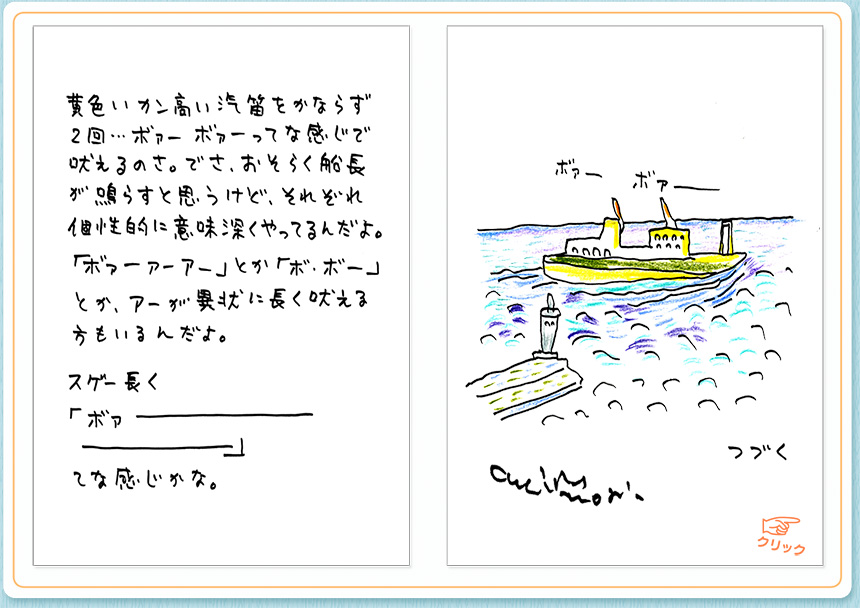 黄色いカン高い汽笛をかならず
2回…ボァー ボァーってな感じで
吠えるのさ。でさ、おそらく船長
が鳴らすと思うけど、それぞれ
個性的に意味深くやってるんだよ。
「ボァーァーァー」とか「ボ・ボー」
とか、アーが異状に長く吠える
方もいるんだよ。
スゲー長く
「ボァ――――――
――――――」
てな感じかな。
ボァー
ボァー
つづく
クリック